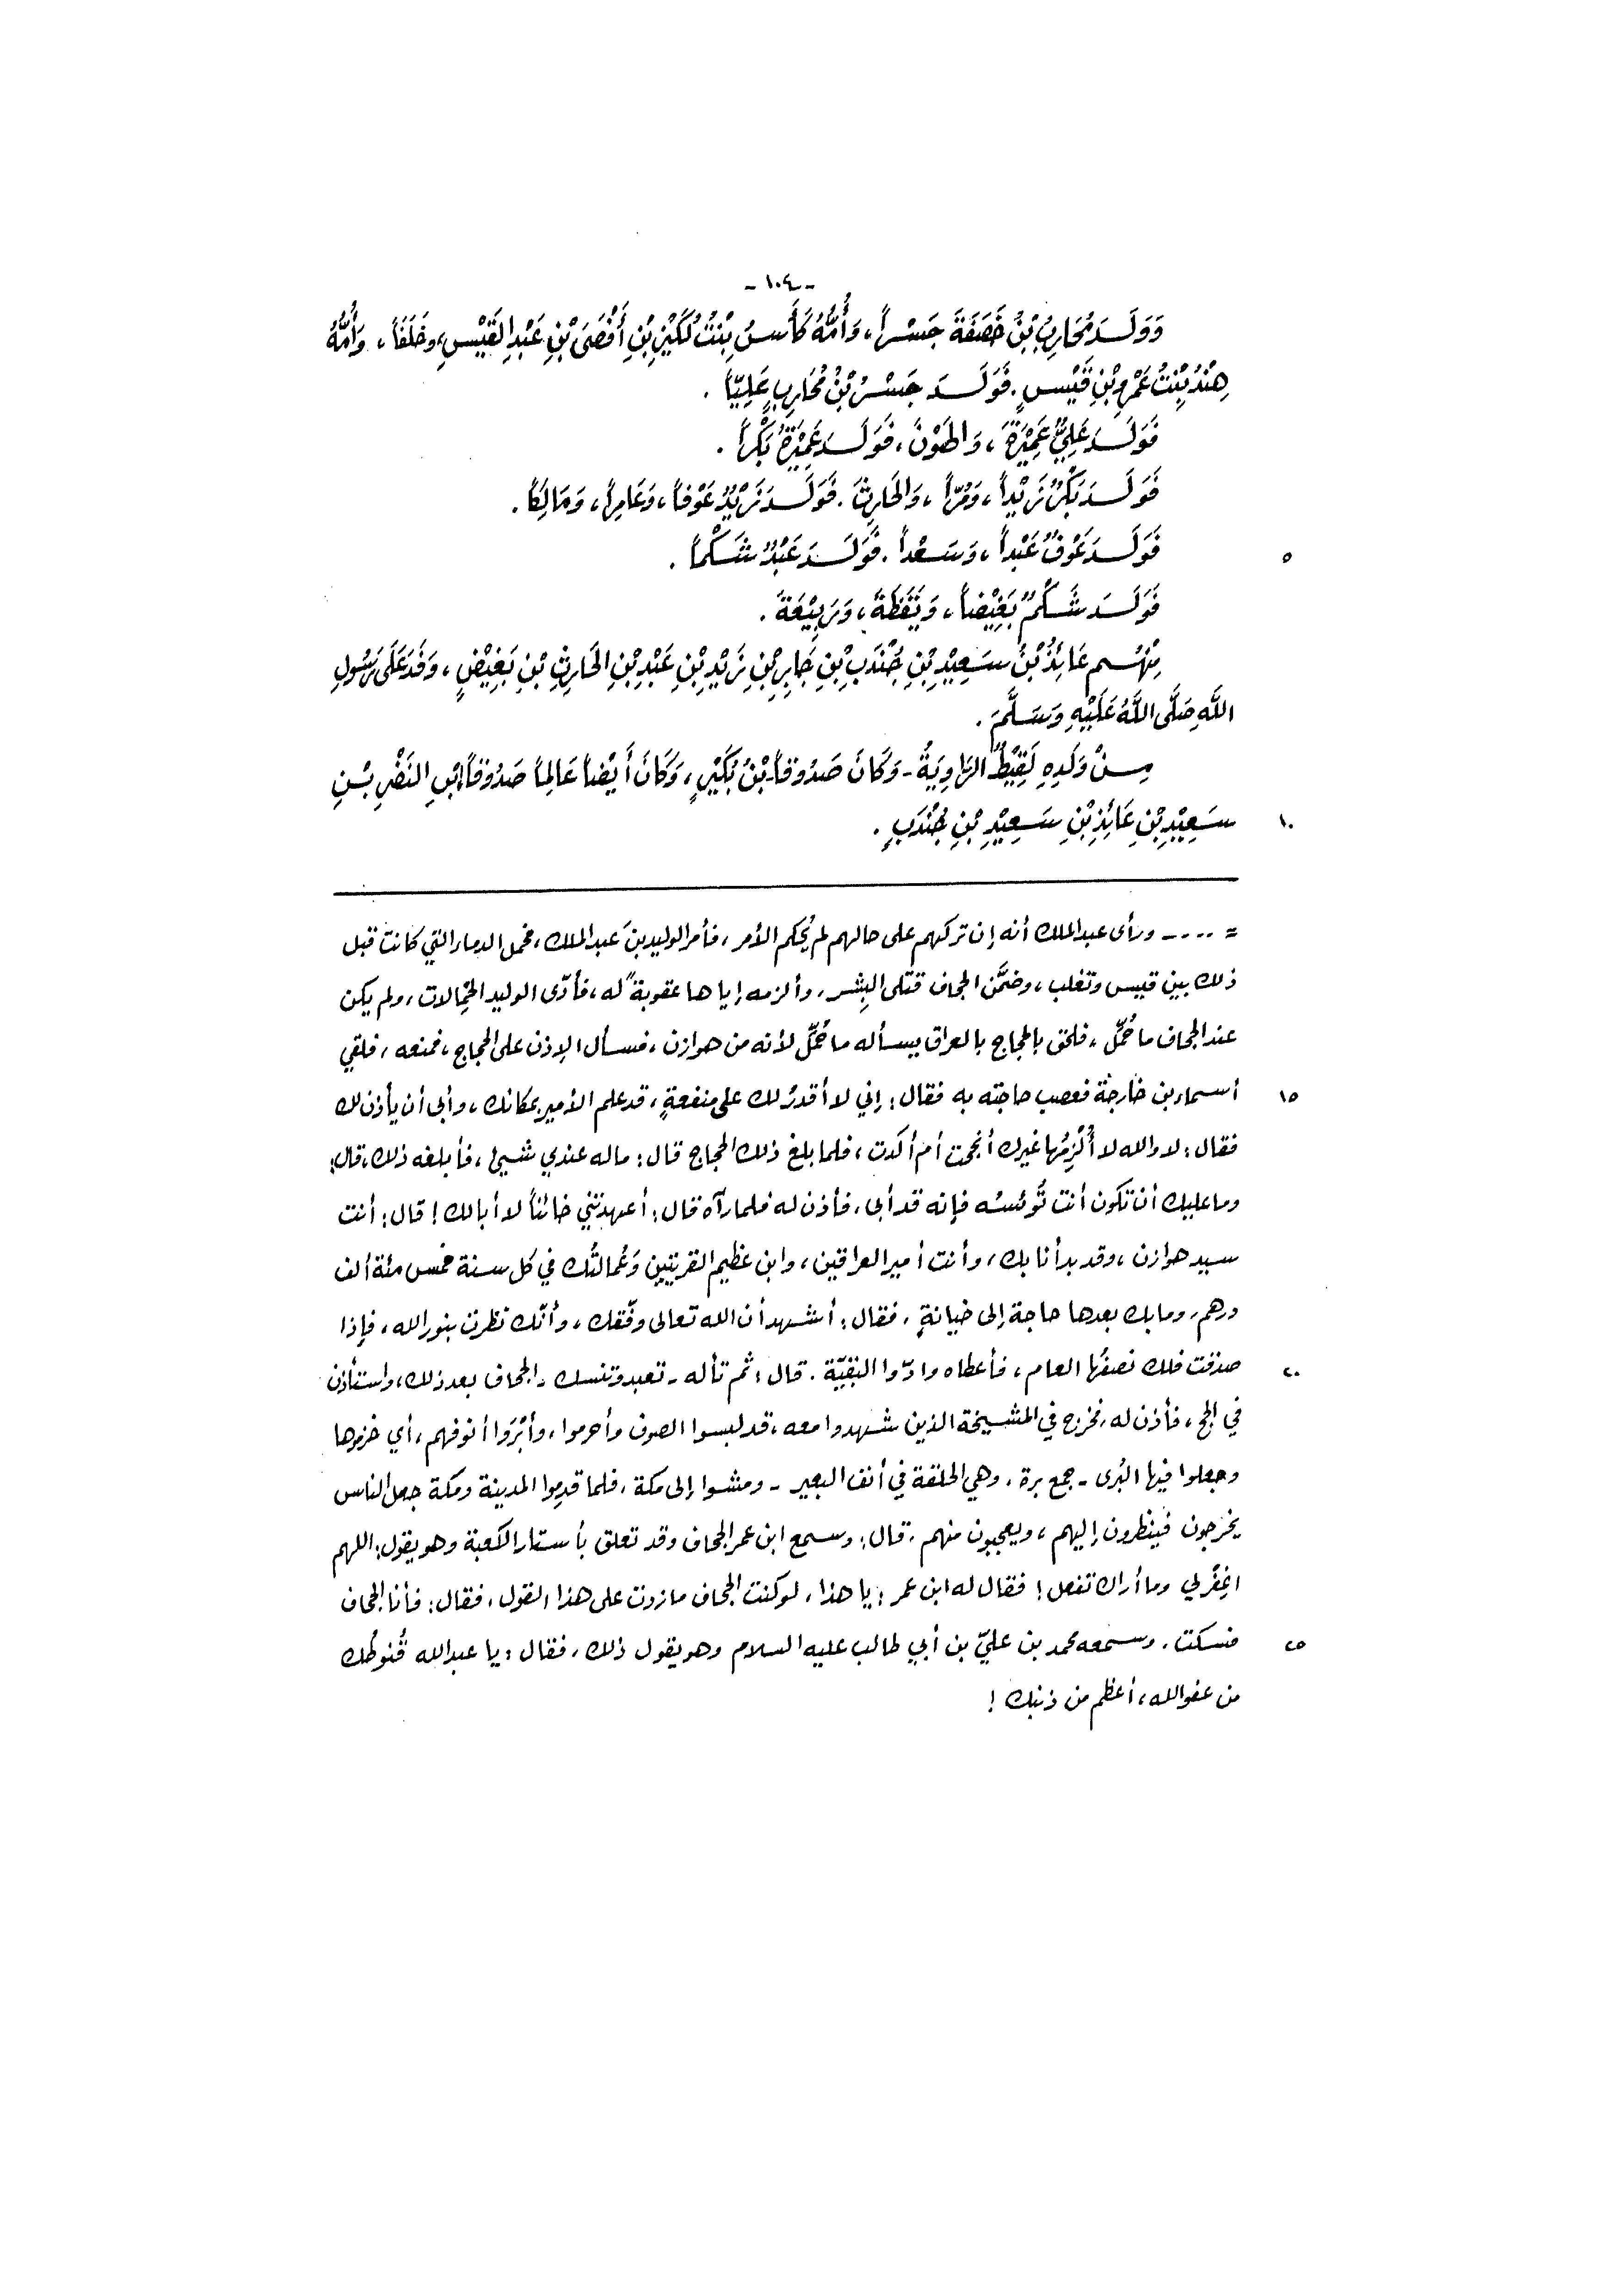 -١٠٤-
وَوَلَدَ مُحَارِبُ بْنُ خَصَفَةَ جَسْراً، وَأُمُّهُ كَأْسُ بِنْتُ لُكَيْزِ بْنِ أَفْصَى بْنِ عَبْدِ القَيْسِ، وخَلَفاً، وَأُمُّهُ
هِنْدُ بِنْتُ عَمْرِو بْنِ قَيْسٍ. فَوَلَدَ جَسْرُ بْنُ مُحَارِبٍ عَلِيّاً.
فَوَلَدَ عَلِيٌّ عَمِيْرَةَ، وَالهَوْنَ، فَوَلَدَ عَمِيْرَةُ بَكْراً.
فَوَلَدَ بَكْرٌ زَيْداً، وَمُرّاً، وَالحَارِثَ. فَوَلَدَ زَيْدٌ عَوْفاً، وَعَامِراً، وَمَالِكاً.
فَوَلَدَ عَوْفٌ عَبْداً، وَسَعْداً. فَوَلَدَ عَبْدٌ شَكْماً. ٥
فَوَلَدَ شَكْمٌ بَغِيْضاً، وَيَقَظَةَ، وَرَبِيْعَةَ.
مِنْهُم عَائِذُ بْنُ سَعِيْدِ بْنِ جُنْدَبِ بْنِ جَابِرِ بْنِ زَيْدِ بْنِ عَبْدِ بْنِ الحَارِثِ بْنِ بَغِيْضٍ، وَفَدَ عَلَى رَسُولِ
اللَّهِ صَلَّى اللَّهُ عَلَيْهِ وَسَلَّمَ.
مِنْ وَلَدِهِ لَقِيْطٌ الرَّاوِيَةُ - وَكَانَ صَدُوقاً - بْنُ بُكَيْرٍ، وَكَانَ أَيْضاً عَالِماً صَدُوقاً، ابْنِ النَضْرِ بْنِ
سَعِيْدِ بْنِ عَائِذِ بْنِ سَعِيْدِ بْنِ جُنْدَبٍ. ١٠
= ---- ورأى عبد الملك أنه إن تركهم على حالهم لم يُحكم الأمر، فأمر الوليد بنَ عبد الملك، فحمل الدماء التي كانت قبل
ذلك بين قيس وتغلب، وضمَّن الجحاف قتلى البِشر، وألزمه إياها عقوبةً له، فأدّى الوليد الحَمالات، ولم يكن
عند الجحاف ما حُمِّل، فلحق بالحجاج بالعراق يسأله ما حُمِّل لأنه من هوازن، فسأل الإذن على الحجاج، فمنعه، فلقي
أسماء بن خارجة فعصب حاجته به فقال: إني لا أقدرُ لك على منفعةٍ، قد علم الأمير بمكانك، وأبى أن يأذن لك ١٥
فقال: لا والله لا أُلْزِمُها غيرك أنجحت أم أكدت، فلما بلغ ذلك الحجاج قال: ما له عندي شيئ، فأبلغه ذلك، قال:
وما عليك أن تكون أنت تُؤئسُه فإنه قد أبى، فأذن له فلما رآه قال: أعهدتني خائناً لا أبالك! قال: أنت
سيد هوازن، وقد بدأنا بك، وأنت أمير العراقين، وابن عظيم القريتين وَعُمالتُك في كل سنة خمس مئة ألف
درهم، وما بك بعدها حاجة إلى خيانةٍ، فقال: أشهد أن الله تعالى وفّقك، وأنّك نظرت بنور الله، فإذا
صدقت فلك نصفُها العام، فأعطاه وادّوا البقيّة. قال: ثم تأله - تعبد وتنسك - الجحاف بعد ذلك، واستأذن ٢٠
في الحج، فأذن له، فخرج في المشيخة الذين شهدوا معه، قد لبسوا الصوف وأحرموا، وأبْرَوا أنوفهم، أي خزموها
وجعلوا فيها البُرى - جمع برة، وهي الحلقة في أنف البعير - ومشوا إلى مكة، فلما قدِموا المدينة ومكة جعل الناس
يخرجون فينظرون إليهم، ويعجبون منهم. قال: وسمع ابن عمر الجحاف وقد تعلق بأستار الكعبة وهو يقول: اللهم
اغفرْ لي وما أراك تفعل! فقال له ابن عمر: يا هذا، لو كنت الجحاف ما زدت على هذا القول، فقال: فأنا الجحاف
فسكت. وسمعه محمد بن عليّ بن أبي طالب عليه السلام وهو يقول ذلك، فقال: يا عبد الله قُنوطُك ٢٥
من عفو الله، أعظم من ذنبك!